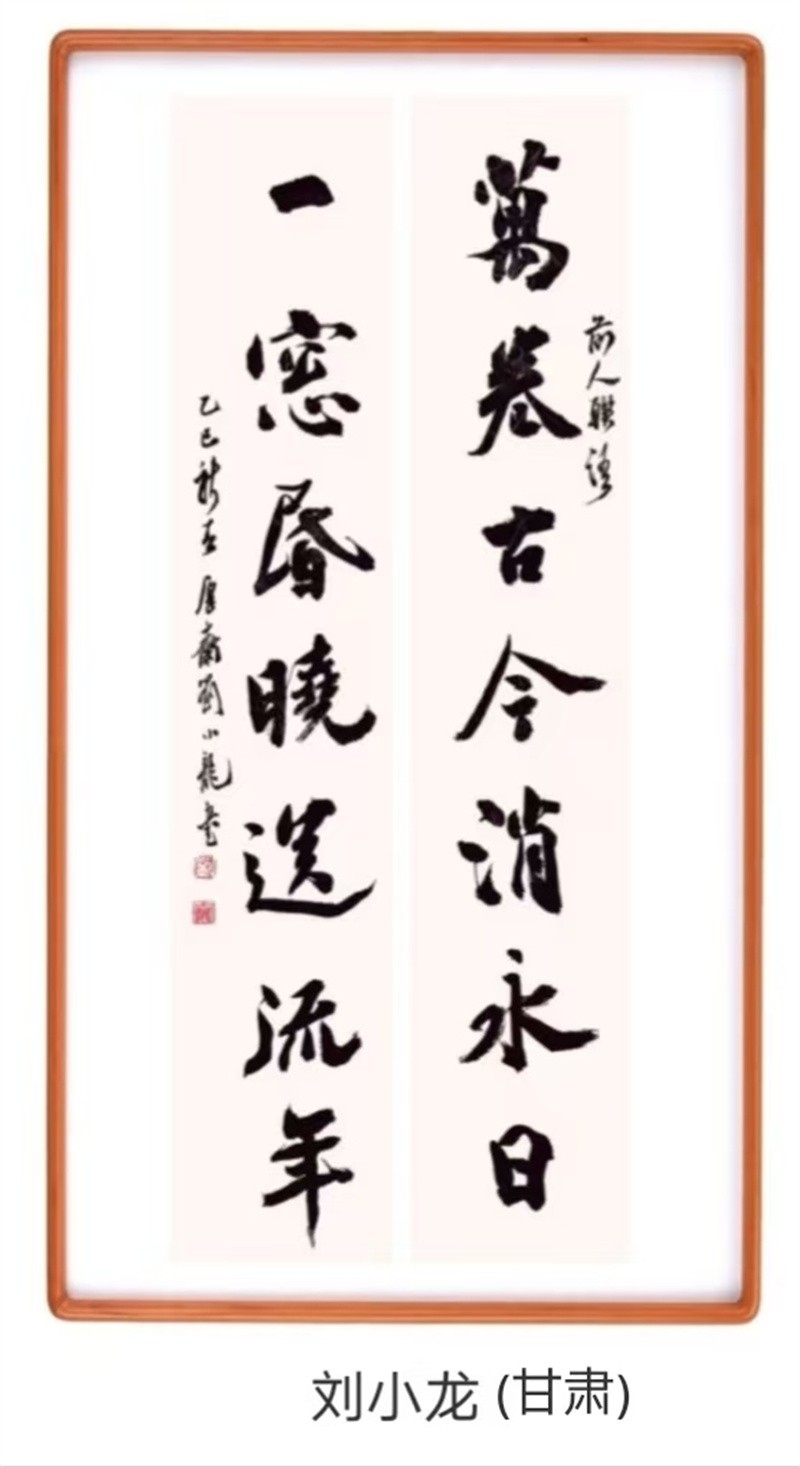 前人聯語
萬卷古今消永日
一窓昏曉送流年
乙巳新春 厚齋劉小龍書
刘小龙 (甘肃)